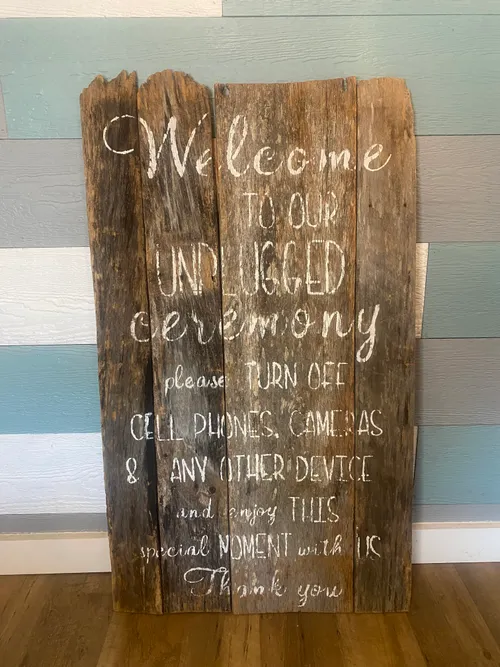 Welcome
TO OUR
UNPLUGGED
ceremony
please TURN OFF
CELL PHONES, CAMERAS
& ANY OTHER DEVICE
and enjoy THIS
special MOMENT with US
Thank you